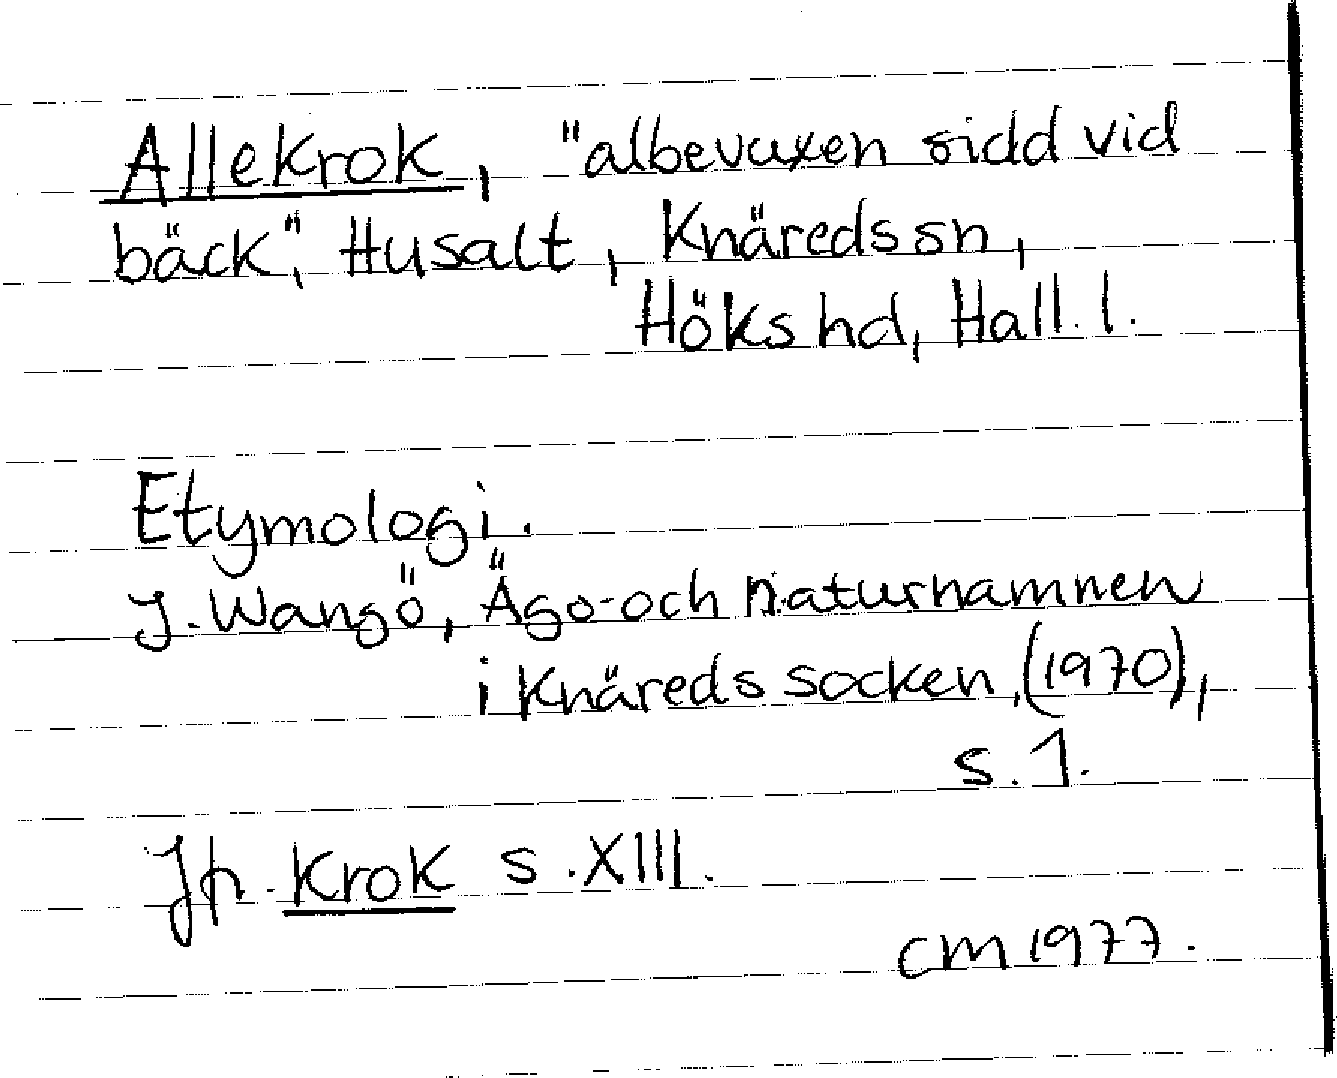 Allekrok, "albevuxen sidd vid
bäck", Husalt, Knäreds sn,
Höks hd, Hall. l.
Etymologi.
J. Wangö, Ägo- och naturnamnen
i Knäreds socken, (1970),
s. 1.
Jfr. Krok s. XIII.
CM 1977.